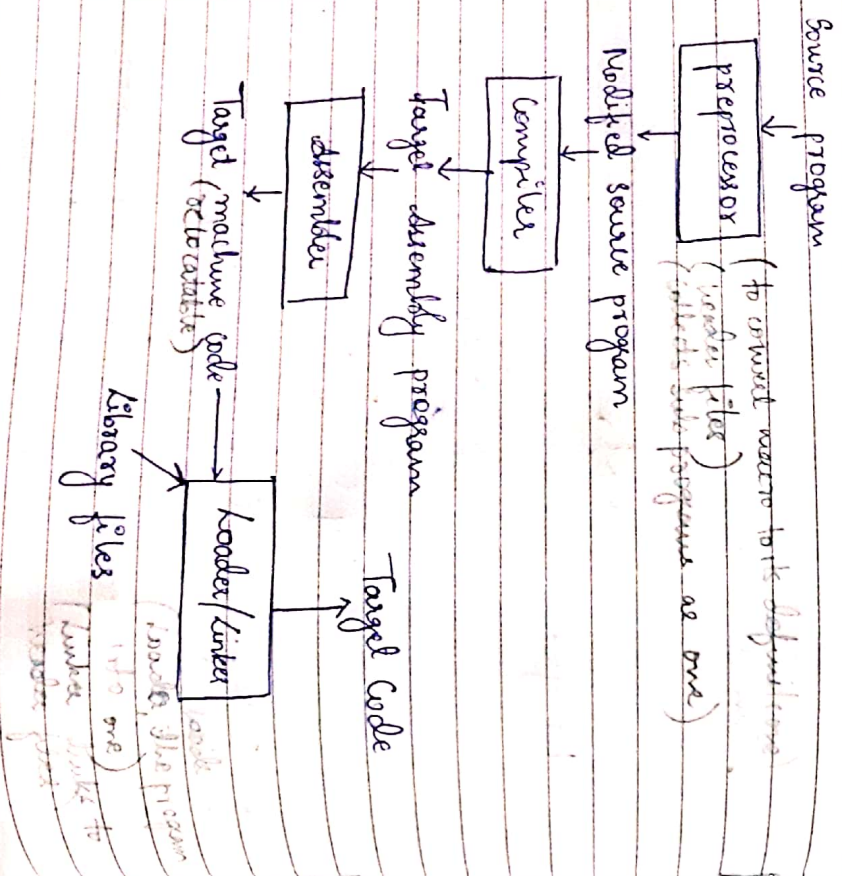 Source program
preprocessor
(to convert macro to its definitions
(header files)
(collects all programs as one)
Modified source program
Compiler
Target Assembly program
Assembler
Target machine code
(relocatable)
Library files
Loader/Linker
Target Code
(Loader, the program
into one)
(Linker links to